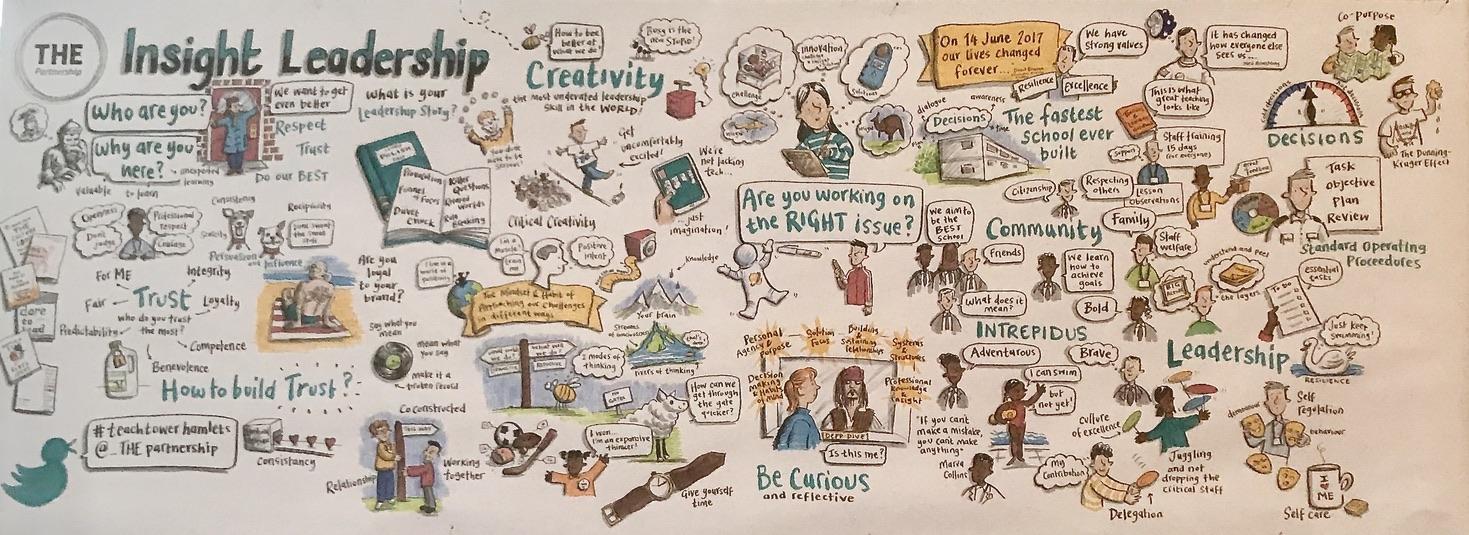 THE
Partnership
Insight Leadership
Who are you?
Why are you
here?
valuable
to learn
unexpected
learning
We want to get
even better
Respect
Trust
Do our BEST
What is your
Leadership Story?
How to bee
better at
what we do
Busy is the
new Stupid!
Creativity
the most underated leadership
skill in the WORLD!
Get
uncomfortably
excited!
We're
not lacking
tech...
...just
imagination!
Critical Creativity
Killer
Questions
Shared
Worlds
Rule
Breaking
Openness
Don't
Judge
Professional
respect
Courage
Consistency
Reciprocity
Scarcity
Persuation and Influence
For ME
Integrity
Fair
Trust
Loyalty
who do you trust
the most?
Predictability
Competence
Benevolence
How to build Trust?
Are you
loyal
to your
brand?
Say what you
mean
mean what
you say
make it a
broken record
#teachtower hamlets
@_THE partnership
Consistancy
Co constructed
THIS WAY
Relationship
Working
together
I'm a
Muscle
train
me
Positive
intent
The Mindset & Habit of
Approaching our Challenges
in different ways
Knowledge
Your brain
rivers of thinking
2 modes of
thinking
MY
GATES
How can we
get through
the gate
quicker?
I won...
I'm an expansive
thinker!
Give yourself
time
challenge
innovation
solutions
Are you working on
the RIGHT issue?
Personal
Agency &
purpose
Solution
Focus
Building &
Sustaining
relationships
Systems
&
Structures
Decision
Making
& Habits
of Mind
Professional
Knowledge
& Insight
DEEP DIVE!
Is this me?
Be Curious
and reflective
On 14 June 2017
our lives changed
forever...
Resilience
Excellence
We have
strong values
It has changed
how everyone else
sees us...
Neil Armstrong
This is what
great teaching
looks like
dialogue
awareness
Decisions
time
The fastest
school ever
built
Support
Staff training
15 days
(for everyone)
Citizenship
Respecting
others
Lesson
observations
great
feedback
Family
We aim to
be the
BEST
school
Community
Friends
We learn
how to
achieve
goals
Staff
welfare
What does it
mean?
Bold
INTREPIDUS
Adventurous
Brave
I can swim
but
not yet!
"If you can't
make a mistake,
you can't make
anything"
Marva
Collins
Culture
of excellence
My
Contribution
Delegation
Juggling
and not
dropping the
critical stuff
Leadership
understand and peel
the layers
To do
essential
tasks
Just keep
Swimming!
RESILIENCE
Self
regulation
demeanour
behaviour
I
♥
ME
Self care
Co-purpose
DECISIONS
The Dunning-
Kruger Effect
Task
objective
Plan
Review
Standard Operating
Proceedures